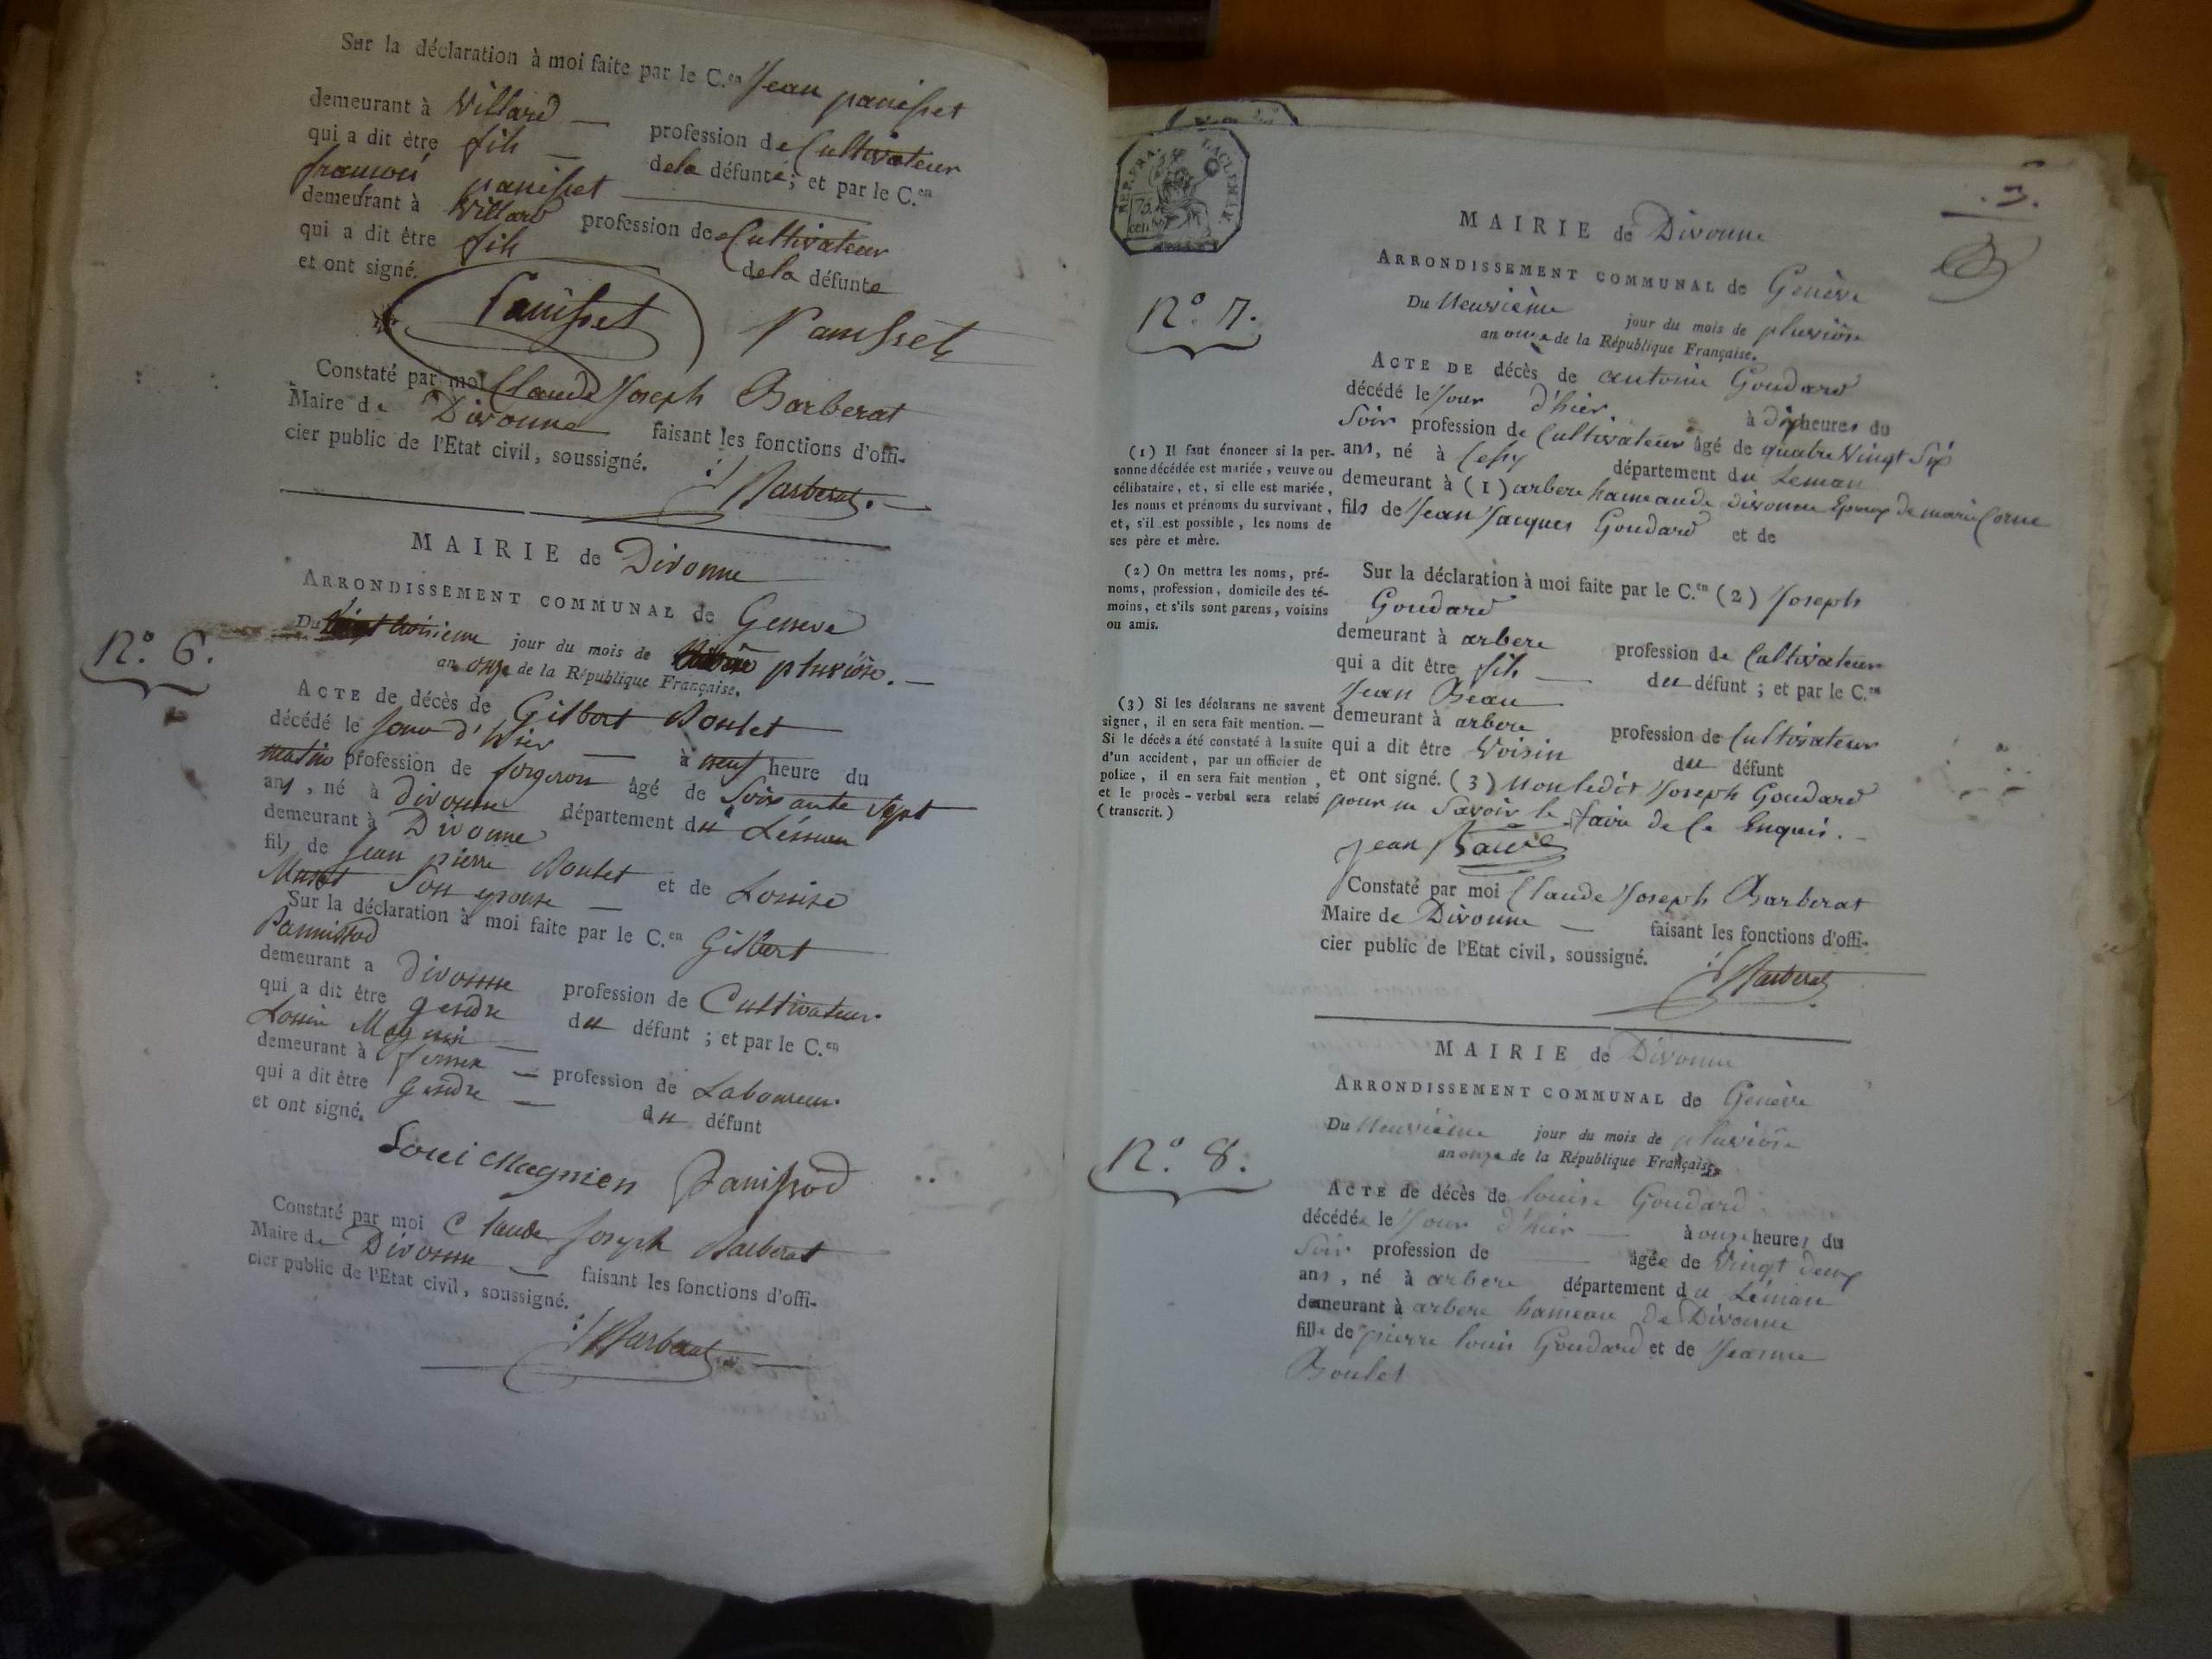 Sur la déclaration à moi faite par le C.en Jean panisset
demeurant à Villard — profession de Cultivateur
qui a dit être fils — dela défunte; et par le C.en
francois panisset
demeurant à Villard profession de Cultivateur
qui a dit être fils dela défunte
et ont signé.
Panisset Panisset
Constaté par moi Claude Joseph Barberat
Maire de Divonne faisant les fonctions d'offi-
cier public de l'Etat civil, soussigné.
Barberat.
MAIRIE de Divonne
ARRONDISSEMENT COMMUNAL de Geneve
N.º 6.
Du jour du mois de pluviôse. —
an onze de la République Française.
ACTE de décès de Gilbert Boulet
décédé le Jour d'hier — à neuf heure du
matin profession de forgeron âgé de Soixante Sept
ans, né à divonne département du Léman
demeurant à Divonne
fils de Jean pierre Boulet et de Louise
Son epouse —
Sur la déclaration à moi faite par le C.en Gilbert
Pannissod
demeurant a divonne profession de Cultivateur.
qui a dit être gendre du défunt; et par le C.en
Louis Magnin —
demeurant à — profession de Laboureur.
qui a dit être Gendre — du défunt
et ont signé.
Loui Magnien Panissod
Constaté par moi Claude Joseph Barberat
Maire de Divonne — faisant les fonctions d'offi-
cier public de l'Etat civil, soussigné.
Barberat
.3.
REP. FRA.
75.
cen.
MAIRIE de Divonne
ARRONDISSEMENT COMMUNAL de Genève
N.º 7.
Du Neuvième jour du mois de pluviôse
an onze de la République Française.
ACTE DE décès de antoine Goudard
décédé le Jour d'hier. à dix heures du
Soir profession de Cultivateur âgé de quatre Vingt Six
ans, né à Cessy département du Leman
demeurant à (1) arbere hameau de divonne Epoux de marie Corne
fils de Jean Jacques Goudard et de
(1) Il faut énoncer si la per-
sonne décédée est mariée, veuve ou
célibataire, et, si elle est mariée,
les noms et prénoms du survivant,
et, s'il est possible, les noms de
ses père et mère.
(2) On mettra les noms, pré-
noms, profession, domicile des té-
moins, et s'ils sont parens, voisins
ou amis.
(3) Si les déclarans ne savent
signer, il en sera fait mention. —
Si le décès a été constaté à la suite
d'un accident, par un officier de
police, il en sera fait mention,
et le procès-verbal sera relaté
(transcrit.)
Sur la déclaration à moi faite par le C.en (2) Joseph
Goudard
demeurant à arbere profession de Cultivateur
qui a dit être fils — du défunt; et par le C.en
Jean Beau
demeurant à arbere profession de Cultivateur
qui a dit être Voisin du défunt
et ont signé. (3) Non ledit Joseph Goudard
pour ne Savoir le faire de Ce Enquis. —
jean
Constaté par moi Claude Joseph Barberat
Maire de Divonne — faisant les fonctions d'offi-
cier public de l'Etat civil, soussigné.
Barberat
MAIRIE de Divonne
ARRONDISSEMENT COMMUNAL de Genève
Du Neuvième jour du mois de pluviôse
an onze de la République Française
N.º 8.
ACTE de décès de louise Goudard
décédée le Jour d'hier — à onze heures du
Soir profession de — âgée de Vingt deux
ans, né à arbere département du Léman
demeurant à arbere hameau de Divonne
fille de pierre louis Goudard et de Jeanne
Boulet